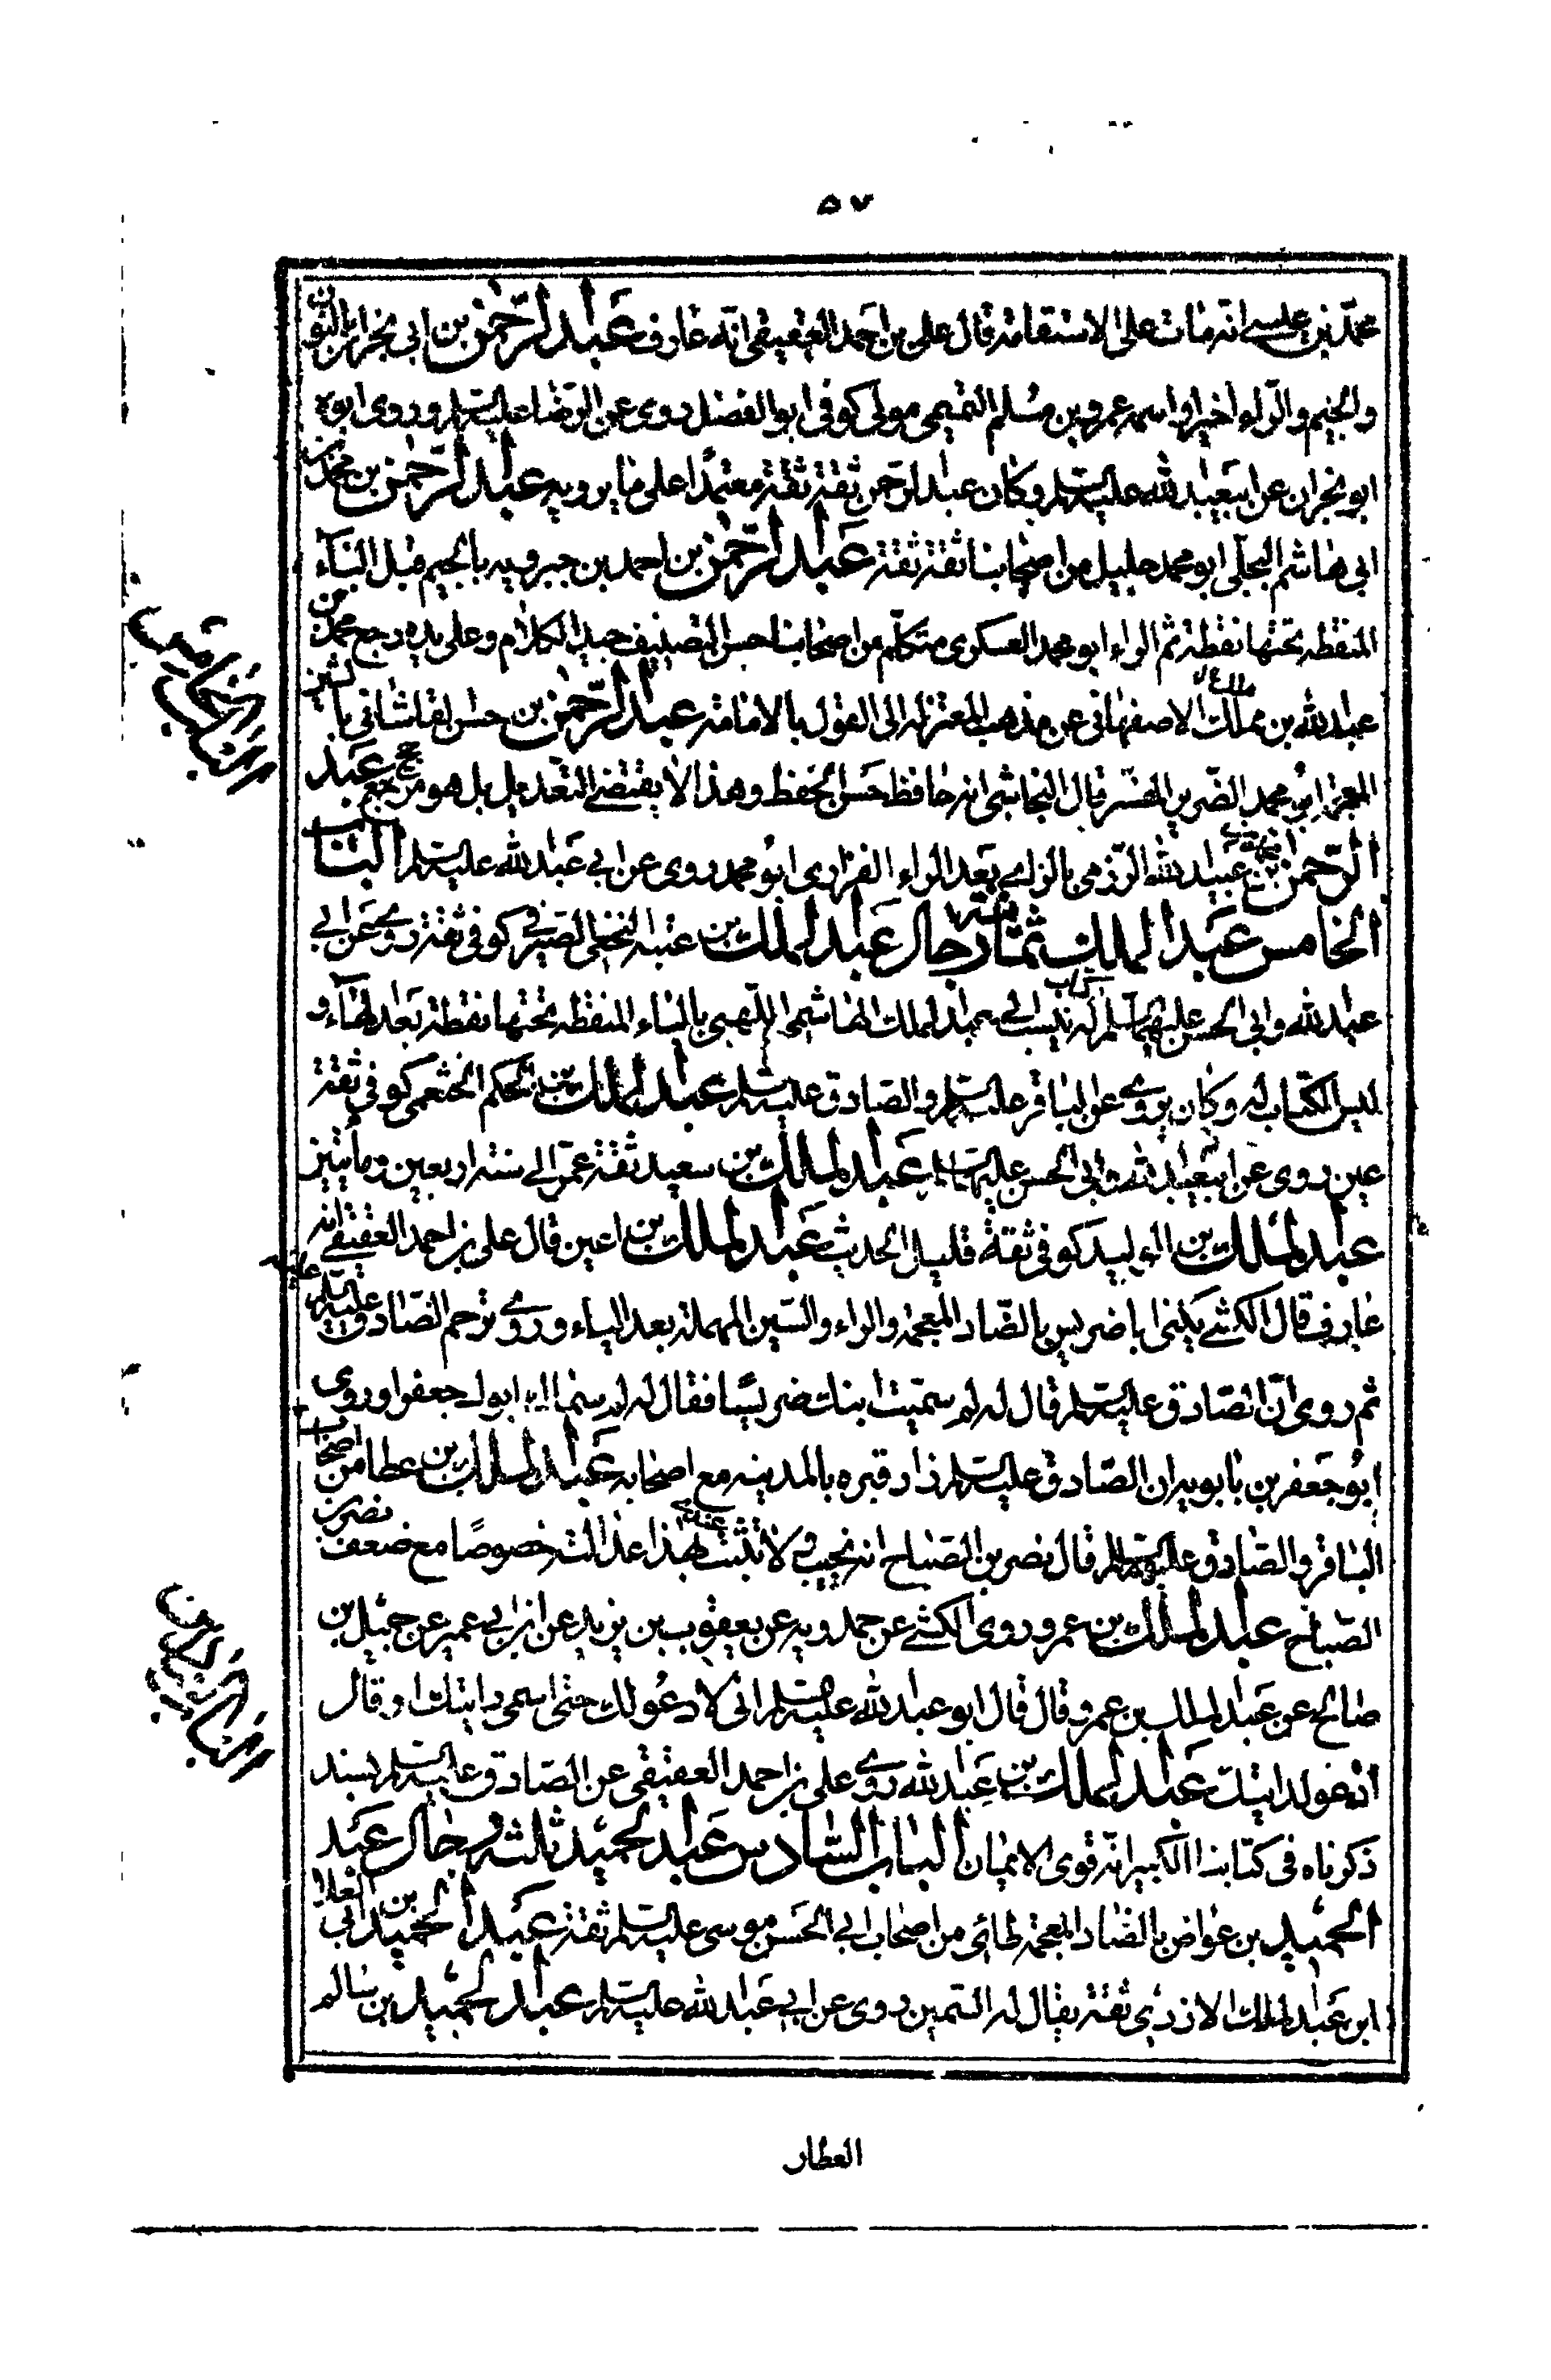 ٥٧
محمد بن عيسى انه مات على الاستقامة قال على بن احمد العقيقى انه عارف عبد الرحمن بن ابى نجران بالنون
والجيم والراء اخيرا واسمه عمرو بن مسلم التميمى مولى كوفى ابو الفضل روى عن الرضا عليه السلم وروى ابوه
ابو نجران عن ابيعبد الله عليه السلم وكان عبد الرحمن ثقة ثقة معتمدا على ما يرويه عبد الرحمن بن محمد بن
ابى هاشم البجلى ابو محمد جليل من اصحابنا ثقة ثقة عبد الرحمن بن احمد بن جبرويه بالجيم قبل الباء
المنقطه تحتها نقطة ثم الراء ابو محمد العسكرى متكلم من اصحابنا حسن التصنيف جيد الكلام وعلى يده رجع محمد بن
عبد الله بن مملك الاصفهانى عن مذهب المعتزله الى القول بالامامة عبد الرحمن بن حسن القاشانى بالشين
المعجمة ابو محمد الضرير المفسر قال النجاشى انه حافظ حسن الحفظ وهذا لا يقتضى التعديل بل هو مرجح عبد
الرحمن بن عبيد الله الرزمى بالزاى بعد الراء الفزارى ابو محمد روى عن ابى عبد الله عليه السلم الباب
الخامس عبد الملك ثمانية رجال عبد الملك بن عتبه النخعى الصيرفى كوفى ثقة روى عن ابى
عبد الله وابى الحسن عليهما السلم له كتاب ينسب الى عبد الملك الهاشمى اللهبى بالباء المنقطه تحتها نقطة بعد الهاء و
ليس الكتاب له وكان يروى عن الباقر عليه السلم والصادق عليه السلم عبد الملك بن الحكم الخثعمى كوفى ثقة
عين روى عن ابيعبد الله وابى الحسن عليهما السلم عبد الملك بن سعيد ثقة عمر الى سنة اربعين ومأتين
عبد الملك بن الوليد كوفى ثقة قليل الحديث عبد الملك بن اعين قال على بن احمد العقيقى انه
عارف قال الكشى يكنى ابا ضريس بالضاد المعجمة والراء والسين المهملة بعد الياء وروى ترحم الصادق عليه السلم عليه
ثم روى ان الصادق عليه السلم قال له لم سميت ابنك ضريسا فقال له لم سماك ابوك جعفرا وروى
ابو جعفر بن بابويه ان الصادق عليه السلم زار قبره بالمدينه مع اصحابه عبد الملك بن عطا من اصحاب
الباقر والصادق عليهما السلم قال نصر بن الصباح انه نجيب ولا تثبت عندى بهذا عدالته خصوصا مع ضعف نصر بن
الصباح عبد الملك بن عمرو روى الكشى عن حمدويه عن يعقوب بن يزيد عن ابن ابى عمير عن جميل بن
صالح عن عبد الملك بن عمرو قال قال ابو عبد الله عليه السلم انى لادعو لك حتى اسمى دابتك او قال
ادعو لدابتك عبد الملك بن عبد الله روى على بن احمد العقيقى عن الصادق عليه السلم بسند
ذكرناه فى كتابنا الكبير انه قوى الايمان الباب السادس عبد الحميد ثلثة رجال عبد
الحميد بن عواض بالضاد المعجمة طائى من اصحاب ابى الحسن موسى عليه السلم ثقة عبد الحميد بن ابى العلا
ابن عبد الملك الازدى ثقة يقال له السمين روى عن ابى عبد الله عليه السلم عبد الحميد بن سالم
العطار